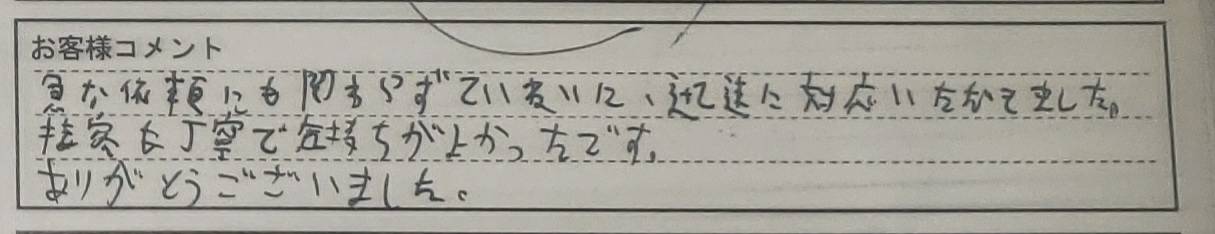 お客様コメント
急な依頼にも関まらずていねいに、迅速に対応いただきました。
接客も丁寧で気持ちがよかったです。
ありがとうございました。